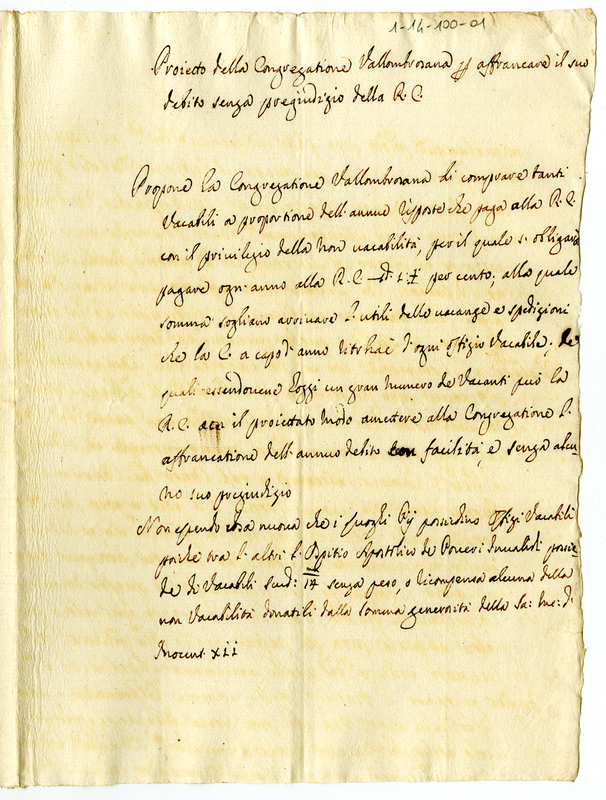 1-14-100-01
Proietto della Congregatione Vallombrosana per affrancare il suo
debito senza pregiudizio della R. C.
Propone la Congregatione Vallombrosana di comprare tanti
Vacabili a proportione dell'annue risposte che paga alla R. C.
con il privilegio della non vacabilità, per il quale si obligarà
pagare ogn'anno alla R. C. per cento; alla quale
somma sogliano arrivare l'utili delle vacanze e spedizioni
che la C. a capo d'anno ritrhae d'ogni Offizio Vacabile; de
quali essendovene hoggi un gran numero de Vacanti può la
R. C. con il proiettato modo amettere alla Congregatione l'
affrancatione dell'annuo debito con facilità, e senza alcu-
no suo pregiudizio
Non essendo cosa nuova che i luoghi Pij possiedino Offizi Vacabili
poiche tra l'altri l'Ospitio Apostolico de Poveri Invalidi possie-
de di Vacabili scudi senza peso, o ricompensa alcuna della
non Vacabilità donatili dalla somma generosità della Sa: Me: d'
Inocent. XII